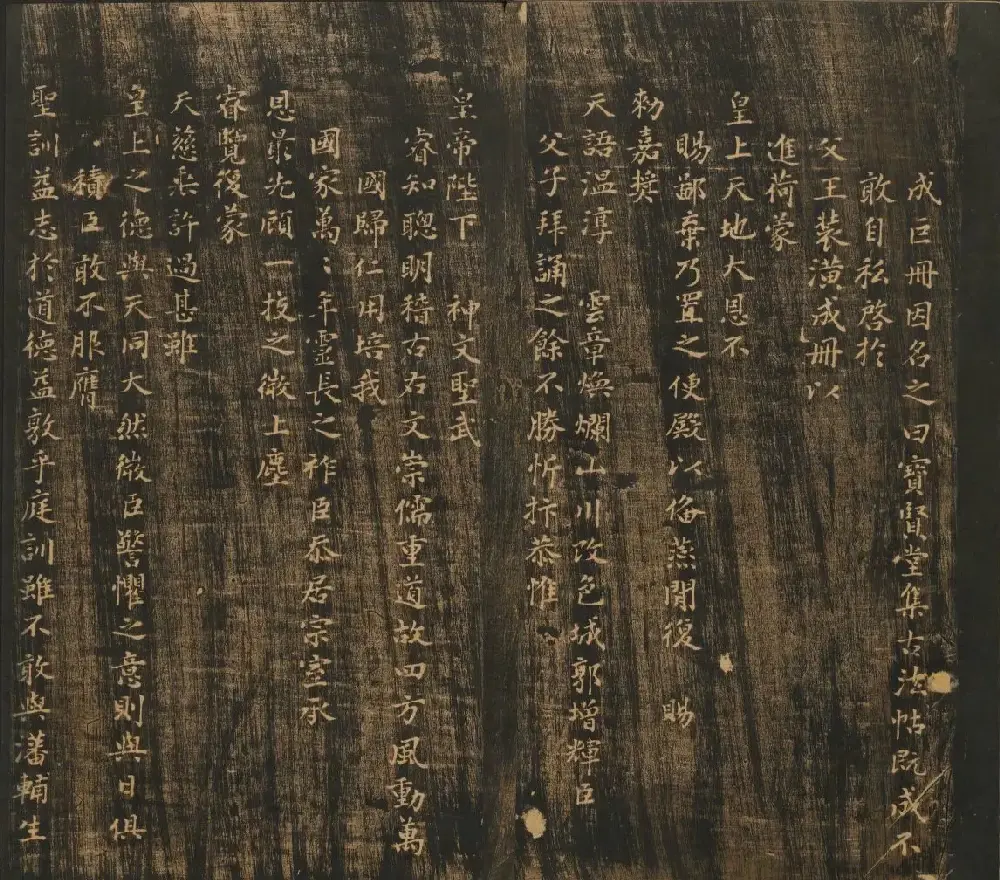 成巨冊因名之曰寶賢堂集古法帖既成不
敢自私啓於
父王裝潢成冊以
進荷蒙
皇上天地大恩不
賜鄙棄乃置之便殿以俻燕閒復賜
勑嘉奨
天語温淳雲章煥爛山川改色城郭增輝臣
父子拜誦之餘不勝忻抃恭惟
皇帝陛下神文聖武
睿知聰明稽古右文崇儒重道故四方風動萬
國歸仁用培我
國家萬〻年靈長之祚臣忝居宗室承
恩㝡先顧一技之微上塵
睿覽復蒙
天慈垂許過甚雖
皇上之德與天同大然微臣警懼之意則與日俱
積臣敢不服膺
聖訓益志於道德益敦乎庭訓雖不敢與藩輔生